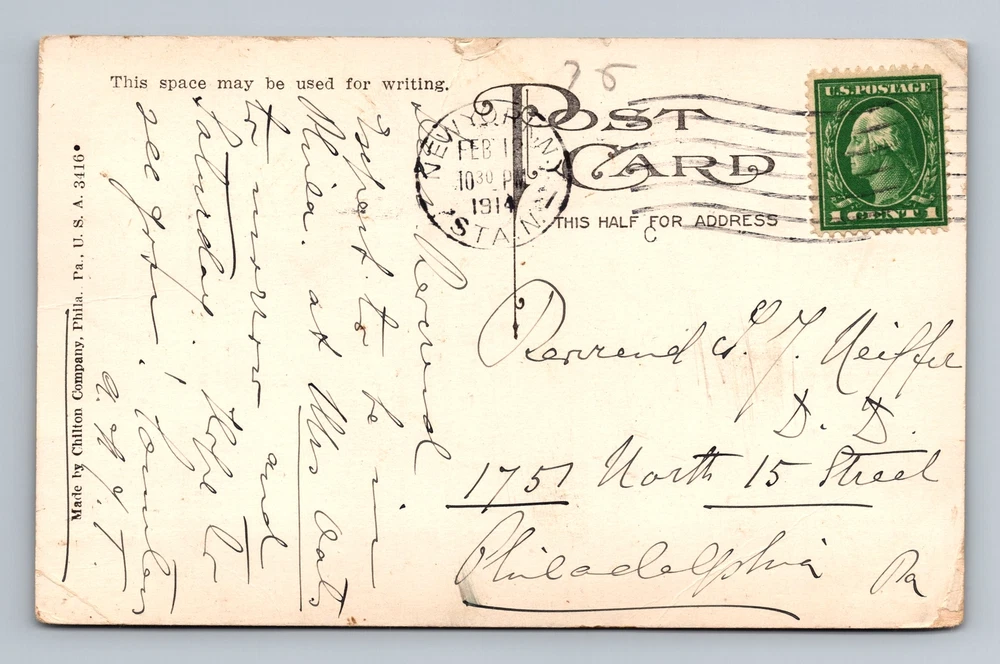 This space may be used for writing.
POST CARD
THIS HALF FOR ADDRESS
NEW YORK, N.Y.
FEB 1
10 30 PM
1914
STA. N.
U.S. POSTAGE
1 CENT 1
35
C
Made by Chilton Company, Phila. Pa., U. S. A. 3416
Reverend
I expect to be in
Phila. at Mrs Oats
to-morrow and
Saturday. Hope to
see you.
Reverend J. Neiffer
D. D.
1751 North 15 Street
Philadelphia Pa